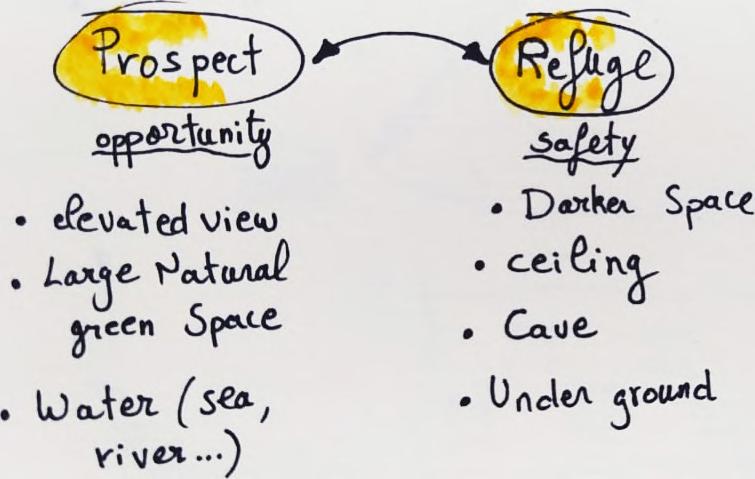 Prospect
opportunity
• elevated view
• Large Natural
green Space
• Water (sea,
river...)
Refuge
safety
• Darker Space
• ceiling
• Cave
• Under ground